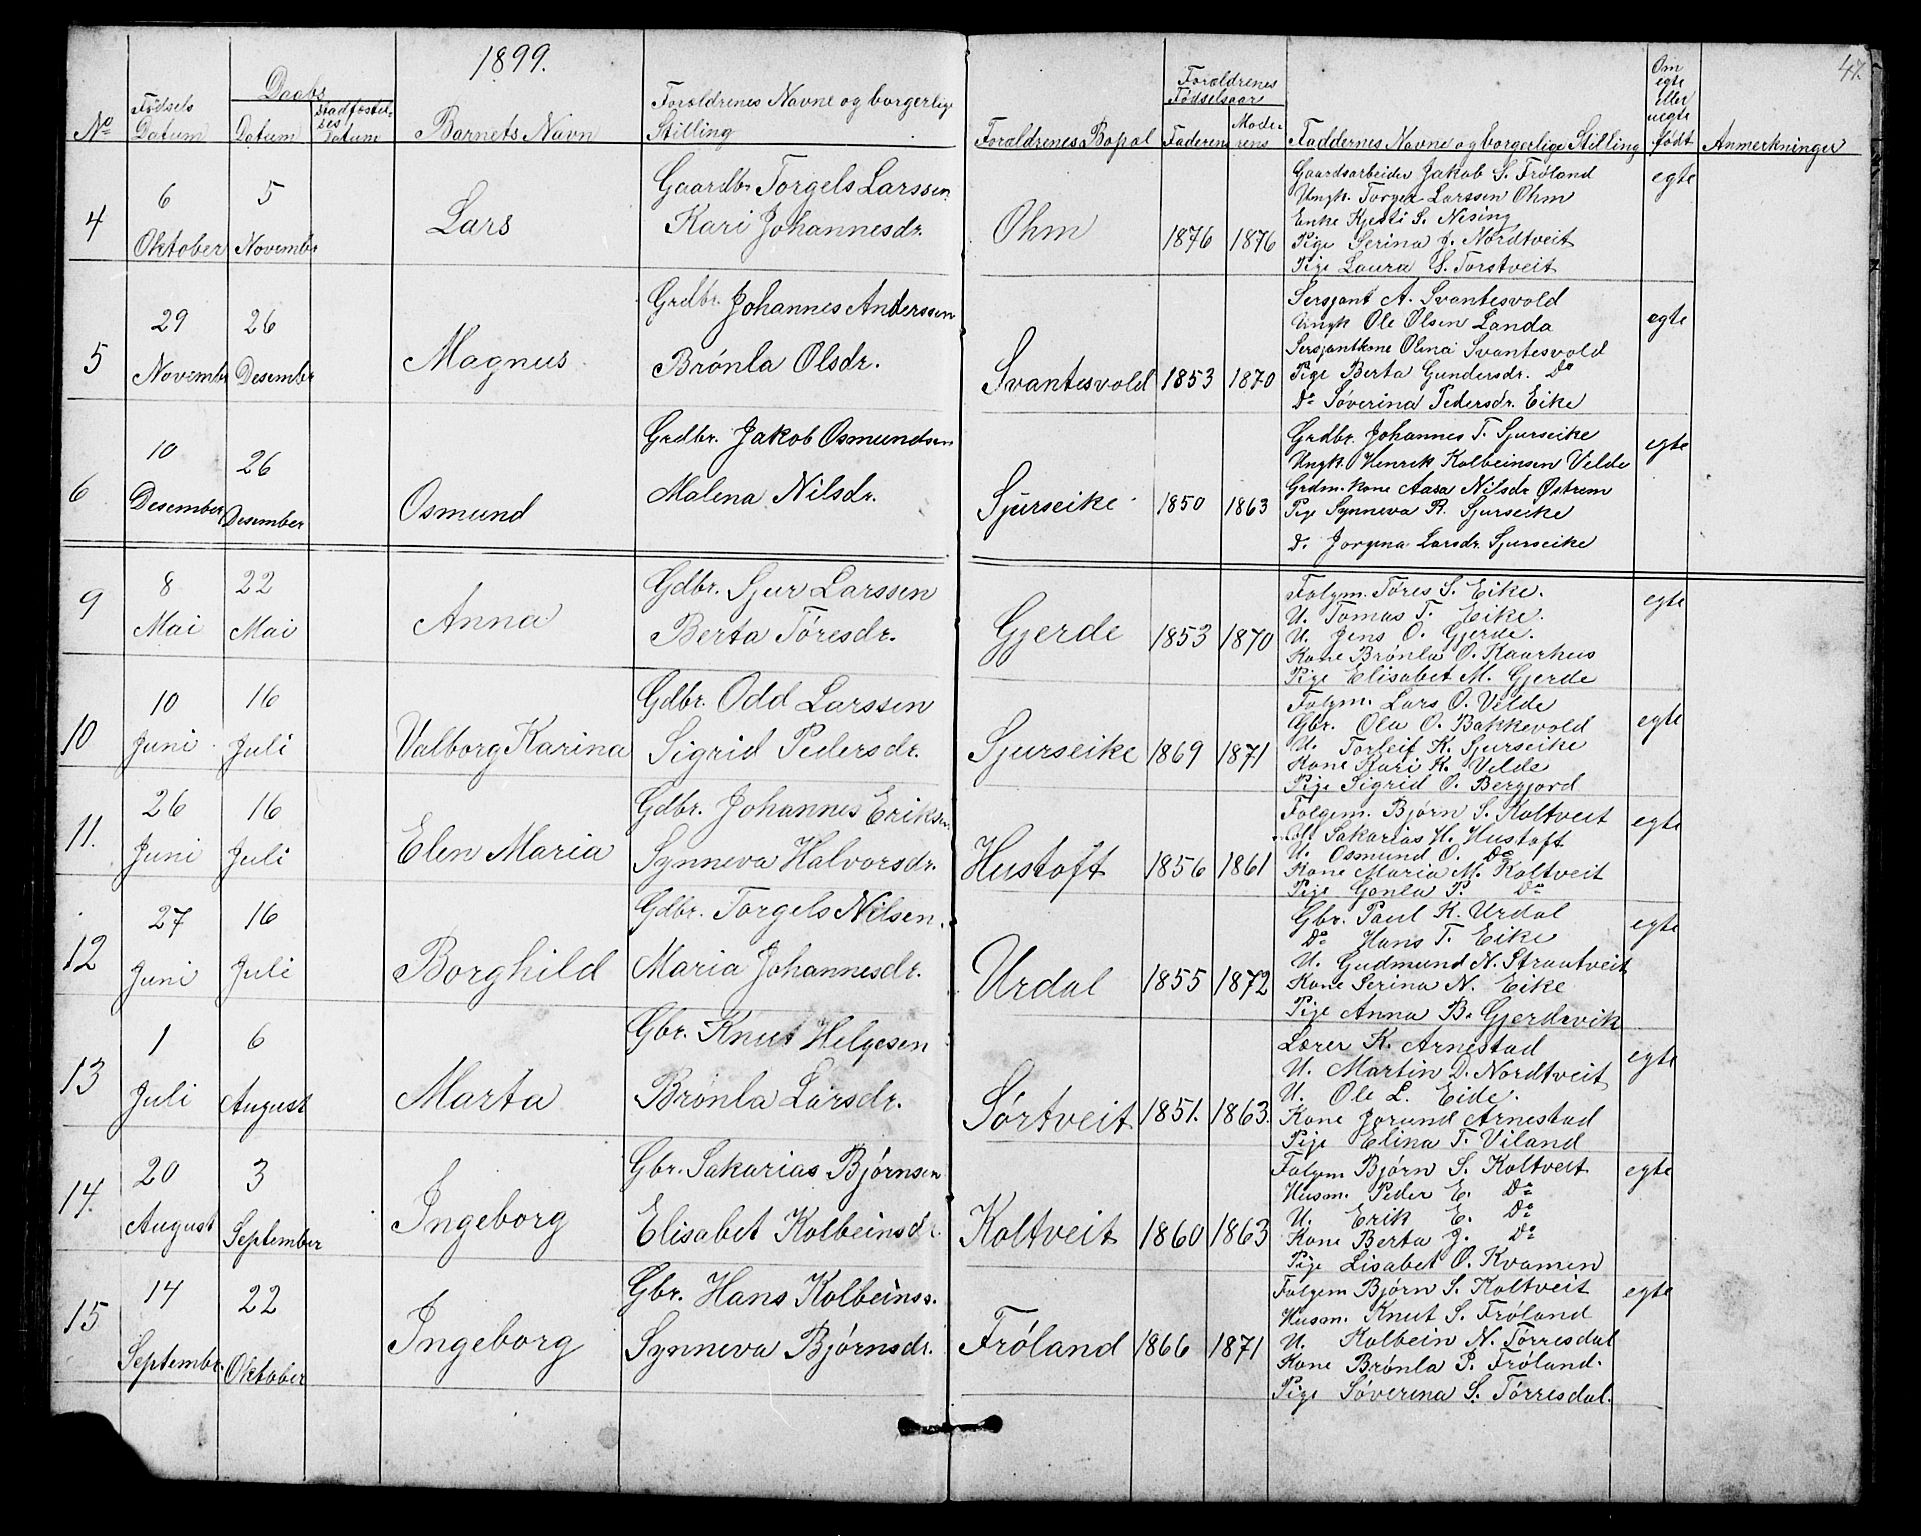 1899.
47.
No
Fødsels
Datum
Daabs
Datum
Stadfæstel-
ses
Datum
Barnets Navn
Forældrenes Navne og borgerlige
Stilling
Forældrenes Bopæl
Forældrenes
Fødselsaar
Faderens
Mode-
rens
Faddernes Navne og borgerlige Stilling
Om
egte
Eller
uegte
født
Anmerkninger
4
6
Oktober
5
Novembr
Lars
Gaardbr. Torgels Larssen
Kari Johannesdr.
Ohm
1876
1876
Gaardsarbeider Jakob S. Frøland
Ungk. Torger Larssen Ohm
Enke Kjesti S. Nesing
Pige Serina J. Nordtveit
Pige Laura S. Torstveit
egte
5
29
Novembr
26
Desember
Magnus
Grdbr. Johannes Anderssen
Brønla Olsdr.
Svantesvold
1853
1870
Sersjant A. Svantesvold
Ungk Ole Olsen Landa
Sersjantkone Olina Svantesvold
Pige Berta Gundersdr. Do
Do Søverina Pedersdr. Eike
egte
6
10
Desember
26
Desember
Osmund
Grdbr. Jakob Osmundsen
Malena Nilsdr.
Sjurseike
1850
1863
Grdbr. Johannes T. Sjurseike
Ungk. Henrik Kolbeinsen Velde
Grdm.kone Aasa Nilsdr Østrem
Pige Synneva R. Sjurseike
D. Jorgina Larsdr. Sjurseike
egte
9
8
Mai
22
Mai
Anna
Gdbr. Sjur Larssen
Berta Tøresdr.
Gjerde
1853
1870
Folgm. Tøres S. Eike.
U. Tomas T. Eike.
U. Jens O. Gjerde.
Kone Brønla O. Kaarhus
Pige Elisabet M. Gjerde
egte
10
10
Juni
16
Juli
Valborg Karina
Gdbr. Odd Larssen
Sigrid Pedersdr.
Sjurseike
1869
1871
Folgm. Lars O. Velde
Gbr. Ola O. Bakkevold
U. Torleif K. Sjurseike
Kone Kari K. Velde
Pige Sigrid O. Bergjord
egte
11.
26
Juni
16
Juli
Elen Maria
Gdbr. Johannes Eriksen
Synneva Halvorsdr.
Hustoft
1856
1861
Folgem. Bjørn S. Koltveit
Sakarias H. Hustoft
U. Osmund O. Do
Kone Maria M. Koltveit
Pige Gonla P. Do
egte
12
27
Juni
16
Juli
Borghild
Gdbr. Torgels Nilsen.
Maria Johannesdr.
Urdal
1855
1872
Gbr. Paul K. Urdal
Do Hans T. Eike
U. Gudmund N. Strantveit
Kone Serina N. Eike
Pige Anna B. Gjerdevik
egte
13
1
Juli
6
August
Marta
Gbr. Knut Helgesen
Brønla Larsdr.
Sørtveit
1851.
1863.
Lærer K. Arnestad
U. Martin D. Nordtveit
U. Ole L. Eide.
Kone Jorund Arnestad
Pige Elina T. Viland
egte
14.
20
August
3
September
Ingeborg
Gbr. Sakarias Bjørnsen
Elisabet Kolbeinsdr.
Koltveit
1860
1863
Folgem Bjørn S. Koltveit
Husm. Peder E. Do
U. Erik E. Do
Kone Berta J. Do
Pige Lisabet O. Kvamen
egte
15
14
Septembr.
22
Oktober
Ingeborg
Gbr. Hans Kolbeinss.
Synneva Bjørnsdr.
Frøland
1866
1871
Folgem Bjørn S. Koltveit
Husm. Knut S. Frøland
U. Kolbein N. Tørresdal
Kone Brønla P. Frøland.
Pige Søverina S. Tørresdal.
egte